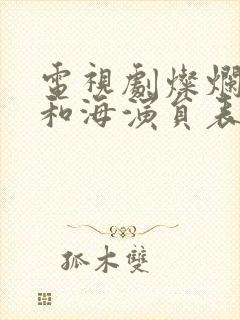 電視劇燦爛
和海演員表
孤木雙